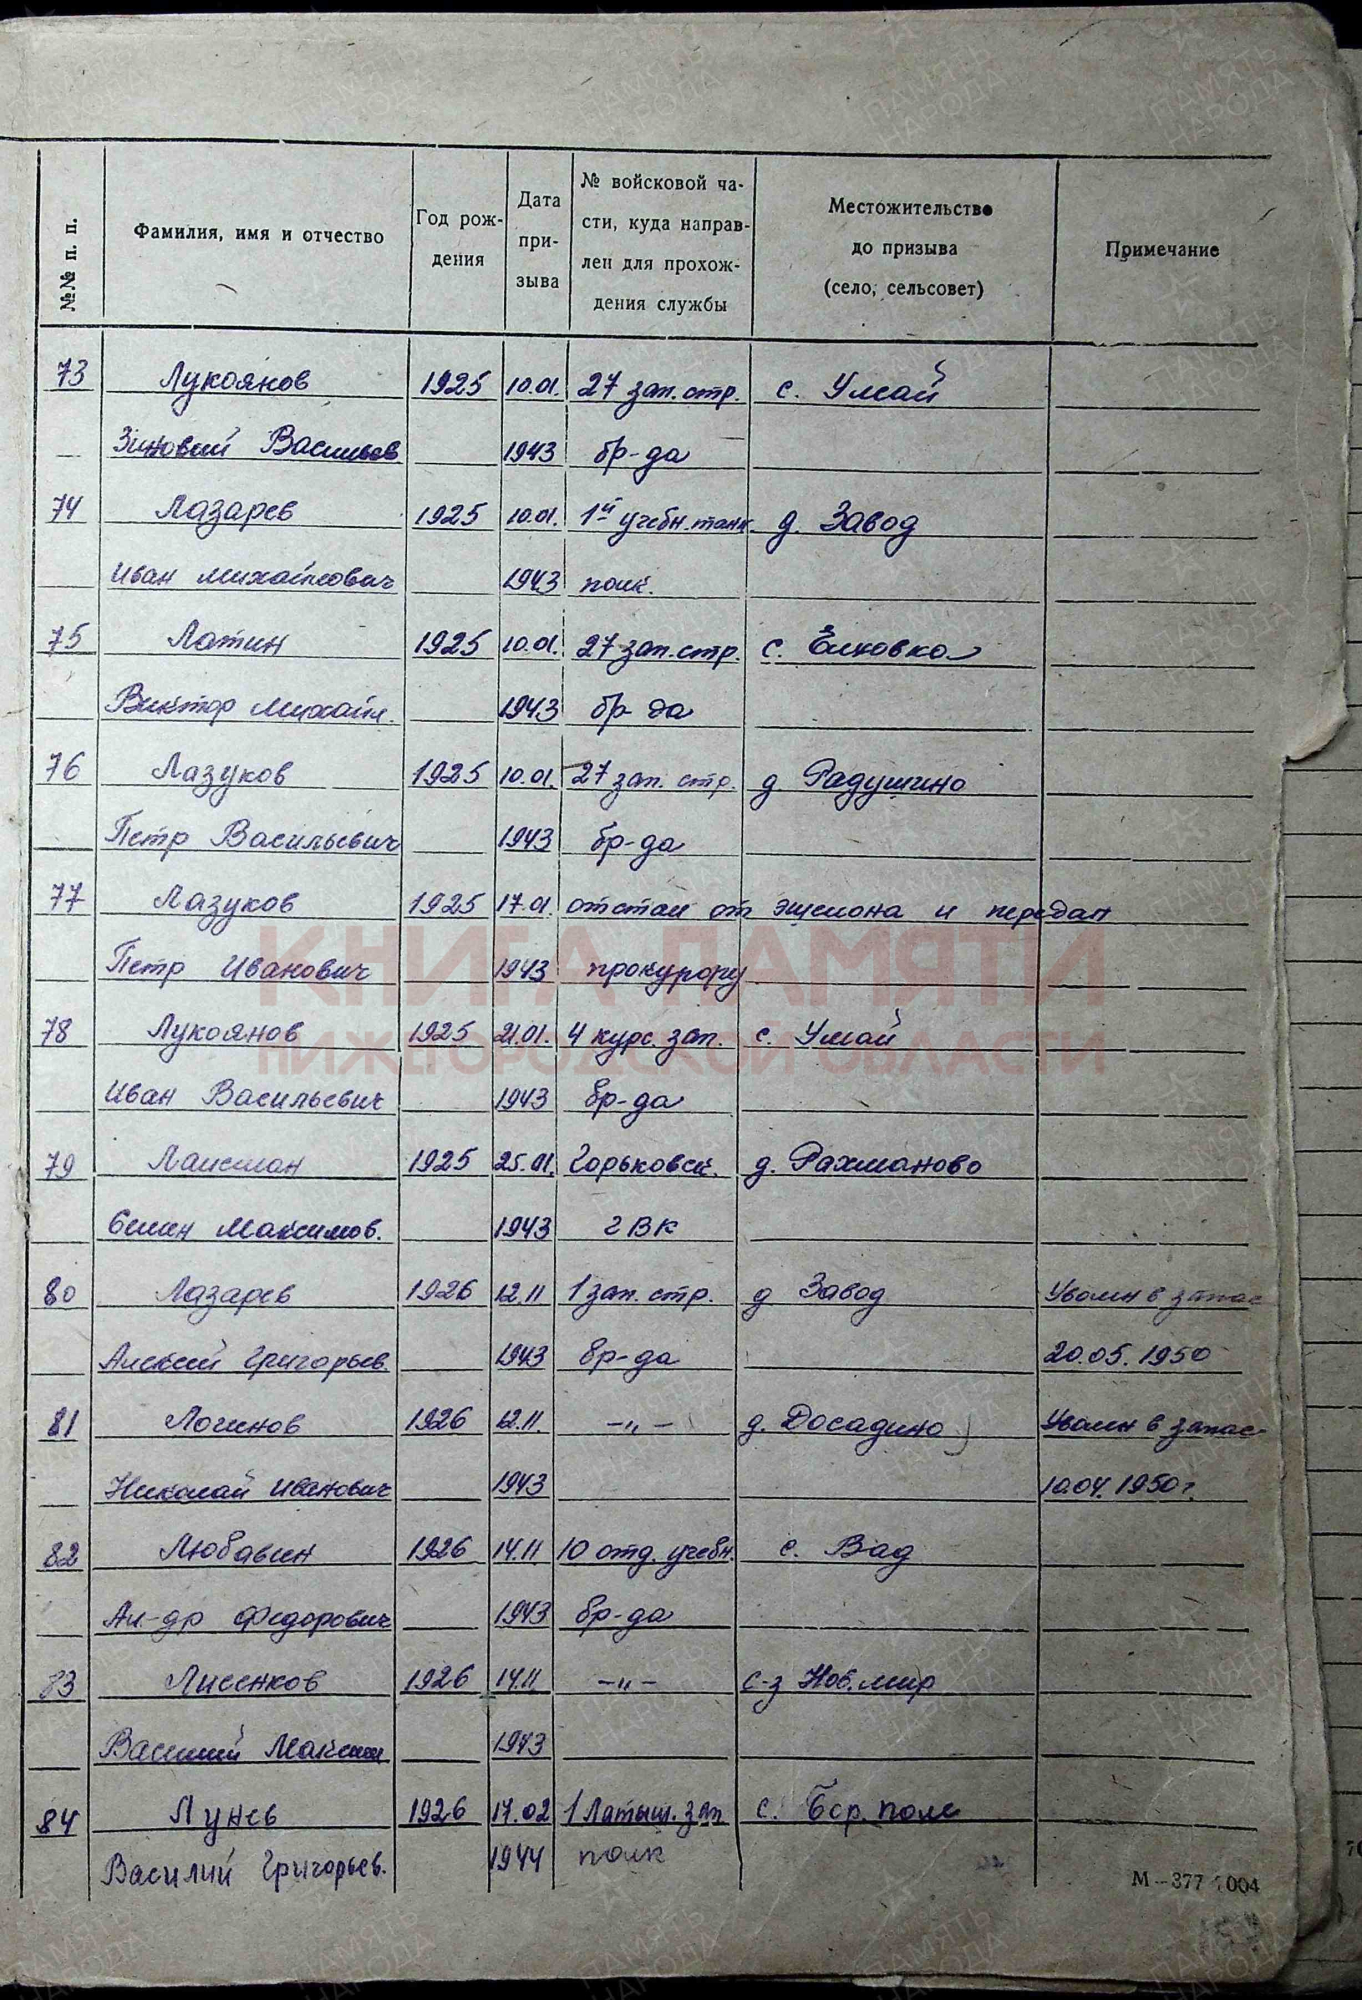 №№ п. п.
Фамилия, имя и отчество
Год рождения
Дата призыва
№ войсковой части, куда направлен для прохождения службы
Местожительство до призыва (село, сельсовет)
Примечание
73 Лукоянов 1925 10.01. 27 зап. стр. с. Умай
Зиновий Васильев 1943 бр-да
74 Лазарев 1925 10.01. 1й учебн. танк. д. Завод
Иван Михайлович 1943 полк.
75 Латин 1925 10.01. 27 зап. стр. с. Елховка
Виктор Михайл. 1943 бр-да
76 Лазуков 1925 10.01. 27 зап. стр. д Радушино
Петр Васильевич 1943 бр-да
77 Лазуков 1925 17.01. отстал от эшелона и передан
Петр Иванович 1943 прокурору
78 Лукоянов 1925 21.01. 4 курс. зап. с. Умай
Иван Васильевич 1943 бр-да
79 1925 25.01. Горьковск. д. Рахманово
Максимов. 1943 ГВК
80 Лазарев 1926 12.11 1 зап. стр. д Завод Уволен в запас
Алексей Григорьев. 1943 бр-да 20.05.1950
81 Логинов 1926 12.11. -"- д. Досадино Уволен в запас
Николай Иванович 1943 10.04.1950г.
82 Любавин 1926 14.11 10 отд. учебн. с. Вад
Ал-др Федорович 1943 бр-да
83 Лисенков 1926 14.11 -"- с-з Нов. мир
Василий Максим 1943
84 Лунев 1926 17.02 1 Латыш. зап с. Бор. поле
Василий Григорьев. 1944 полк
М-377 1004
КНИГА ПАМЯТИ
НИЖЕГОРОДСКОЙ ОБЛАСТИ
ПАМЯТЬ НАРОДА